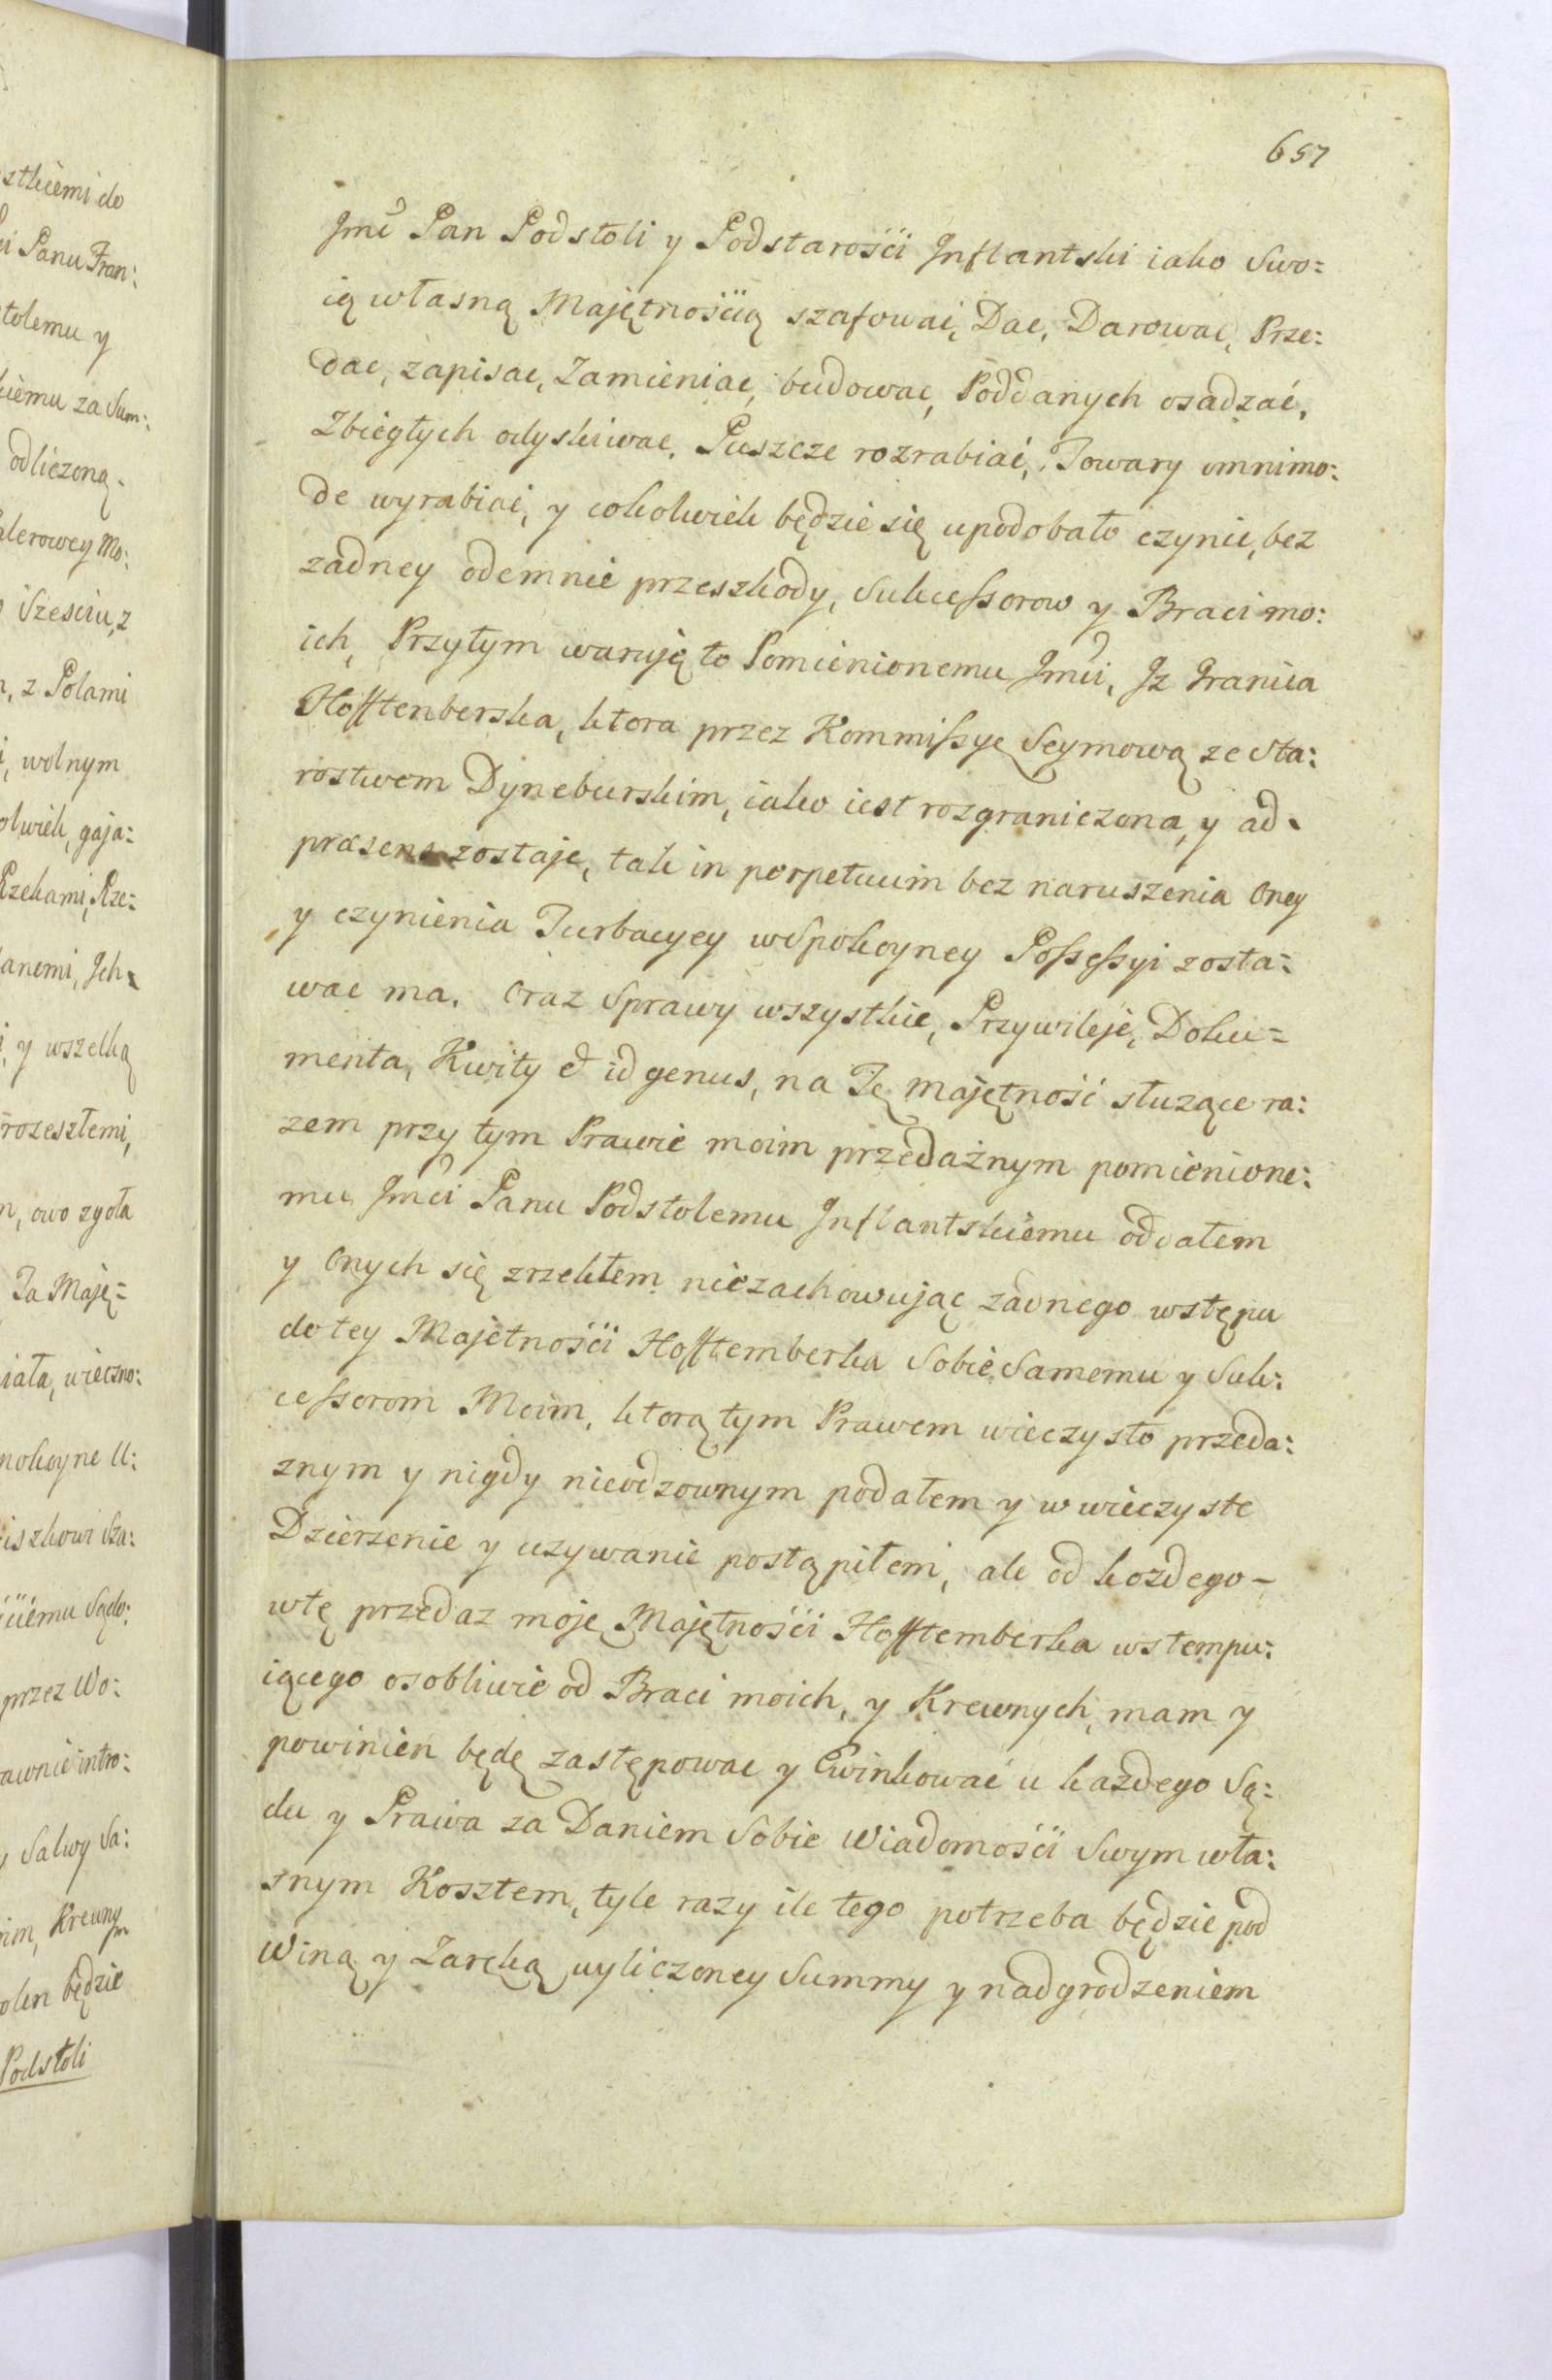 657
Jmć Pan Podstoli y Podstarośći Jnflantski iako Swo:
ią własną Majętnośćią szafować, Dac, Darowac, Prze:
dac, zapisac, Zamieniac, budowac, Poddanych osadzać,
Zbiegłych odyskiwac, Puszcze rozrabiać, Towary omnimo:
de wyrabiać, y cokolwiek będzie się upodobało czynic, bez
zadney odemnie przeszkody, Sukcessorow y Braci mo:
ich, Przytym waruję to Pomienionemu Jmći, Jz Granica
Hofftenberska, ktora przez Kommissyę Seymową ze Sta:
rostwem Dyneburskim, iako iest rozgraniczona, y ad
præsens zostaje, tak in perpetuum bez naruszenia Oney
y czynienia Turbacyey wSpokoyney Possessyi zosta:
wac ma. Oraz Sprawy wszystkie, Przywileje, Doku=
menta, Kwity et id genus, na Tę majętność słuzące ra:
zem przy tym Prawie moim przedażnym pomienione:
mu Jmći Panu Podstolemu Jnflantskiemu oddałem
y Onych się zrzekłem niezachowując zadnego wstępu
do tey Majętnośći Hofftemberka Sobie Samemu y Suk:
cessorom Moim, ktorą tym Prawem wieczysto przeda:
znym y nigdy nieodzownym podałem y w wieczyste
Dzierzenie y uzywanie postąpiłem, ale od kozdego-
wtę przedaz moję Majętnośći Hofftemberka wstempu:
iącego osobliwie od Braci moich, y Krewnych, mam y
powinien będę zastępowac y Ewinkować u kazdego Są:
du y Prawa za Daniem Sobie Wiadomośći Swym wła:
snym Kosztem, tyle razy ile tego potrzeba będzie pod
Winą y Zaręką wyliczoney Summy y nadgrodzeniem